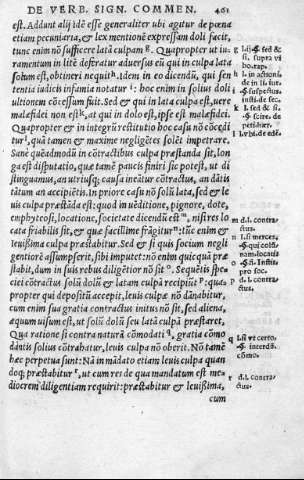 DE VERB. SIGN. COMMEN. 461
est. Addunt alij idē esse generaliter ubi agitur de pœna
etiam pecuniaria, & lex mentionē expressam doli facit,
tunc enim nō sufficere latā culpam g. Quapropter ut iu-
ramentum in litē deferatur aduersus eū qui in culpa lata
solum est, obtineri nequit h. Idem in eo dicendū, qui sen-
tentia iudicis infamia notatur i: hoc enim in solius doli
ultionem cōcessum fuit. Sed & qui in lata culpa est, uere
malæfidei non est k, at qui in dolo est, ipse est malæfidei.
Quapropter & in integrū restitutio hoc casu nō cōcedi
tur l, quā tamen & maxime negligētes solēt impetrare.
Sanè quēadmodū in cōtractibus culpa præstanda sit, lon
ga est disputatio, quæ tamē paucis finiri sic potest, ut di
stinguamus, an utriusq; causa ineātur cōtractus, an dātis
tātum an accipiētis. In priore casu nō solū lata, sed & le
uis culpa præstāda est: quod in uēditione, pignore, dote,
emphyteosi, locatione, societate dicendū est m, nisi res lo
cata friabilis sit, & quæ facillime frāgitur n: tūc enim &
leuissima culpa præstabitur. Sed & si quis socium negli
gentiorē assumpserit, sibi imputet: nō enim quicquā præ
stabit, dum in suis rebus diligētior nō sit o. Sequētis spe-
ciei cōtractus solū dolū & latam culpā recipiūt p: qua-
propter qui depositū accepit, leuis culpæ nō dānabitur,
cum enim sua gratia contractus initus nō sit, sed aliena,
æquum uisum est, ut solū dolū seu latā culpā præstaret.
Qua ratione si contra naturā cōmodati q, gratia cōmo
dantis solius cōtrahatur, leuis culpa nō oberit. Nō tamē
hæc perpetua sunt: Nā in mādato etiam leuis culpa quan
doq; præstabitur r, ut cum res de qua mandatum est me-
diocrem diligentiam requirit: præstabitur & leuissima,
cum
g l.si & sed &
si. supra vi
bo. rap.
h l. in actioni.
de in li. iur.
i §. suspectus.
insti. de sec.
k d. l. sed &
si §. scire. de
peti. hær.
l l. vbi. de edē.
m d. l. contra-
ctus.
n l. si merces.
§. qui colū-
nam. locati
o §. fi. Instit.
pro soc.
p d. l. contra-
ctus.
q l. si vt certo.
§. interdū.
cōmo.
r d. l. contra-
ctus.